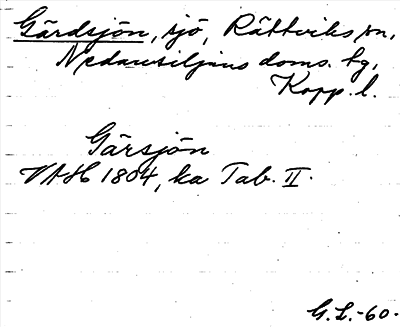 Gärdsjön, sjö, Rättviks sn,
Nedansiljans doms. tg,
Kopp. l.
Gärsjön
VAH 1804, ka Tab. II.
G.L.-60.